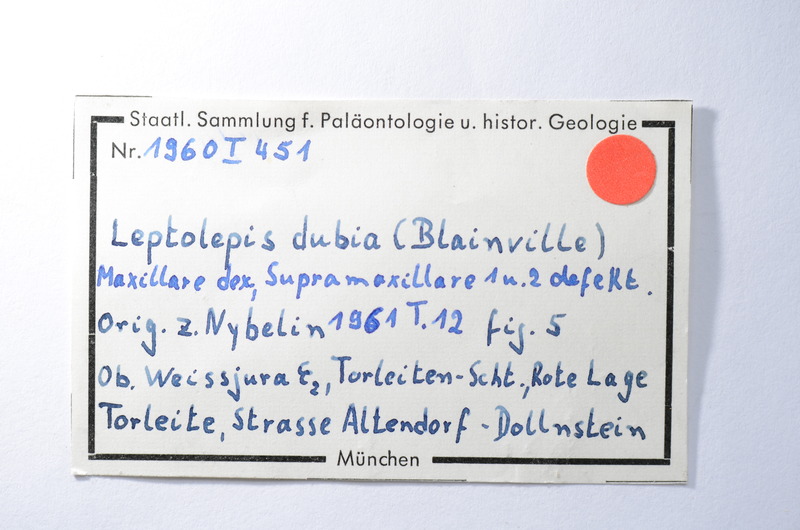 Staatl. Sammlung f. Paläontologie u. histor. Geologie
Nr. 1960 I 451
Leptolepis dubia (Blainville)
Maxillare dex, Supramaxillare 1 u. 2 defekt.
Orig. z. Nybelin 1961 T. 12 fig. 5
Ob. Weissjura ξ₂, Torleiten-Scht., Rote Lage
Torleite, Strasse Altendorf - Dollnstein
München